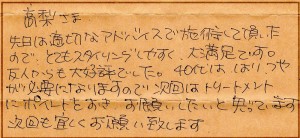 高梨さま
先日は適切なアドバイスで施術して頂いた
ので、とてもスタイリングしやすく、大満足です。
友人からも大好評でした。40代は、はりつや
が必要になりますので次回はトリートメント
にポイントをおき、お願いしたいと思ってます
次回も宜しくお願い致します